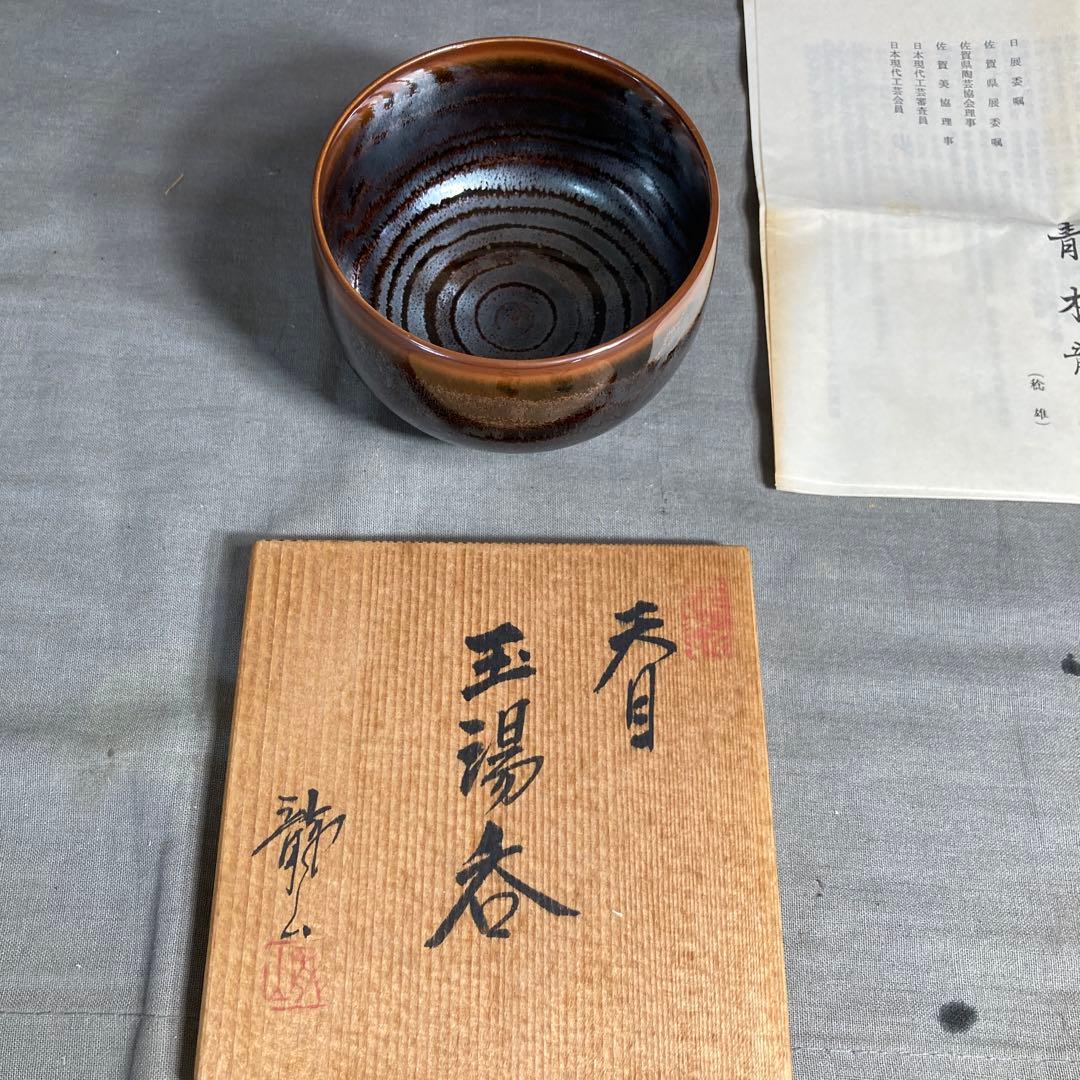 日展委嘱
佐賀県展委嘱
佐賀県陶芸協会理事
佐賀美協理事
日本現代工芸審査員
日本現代工芸会員
青木龍
(稔雄)
天目
玉湯呑
龍山